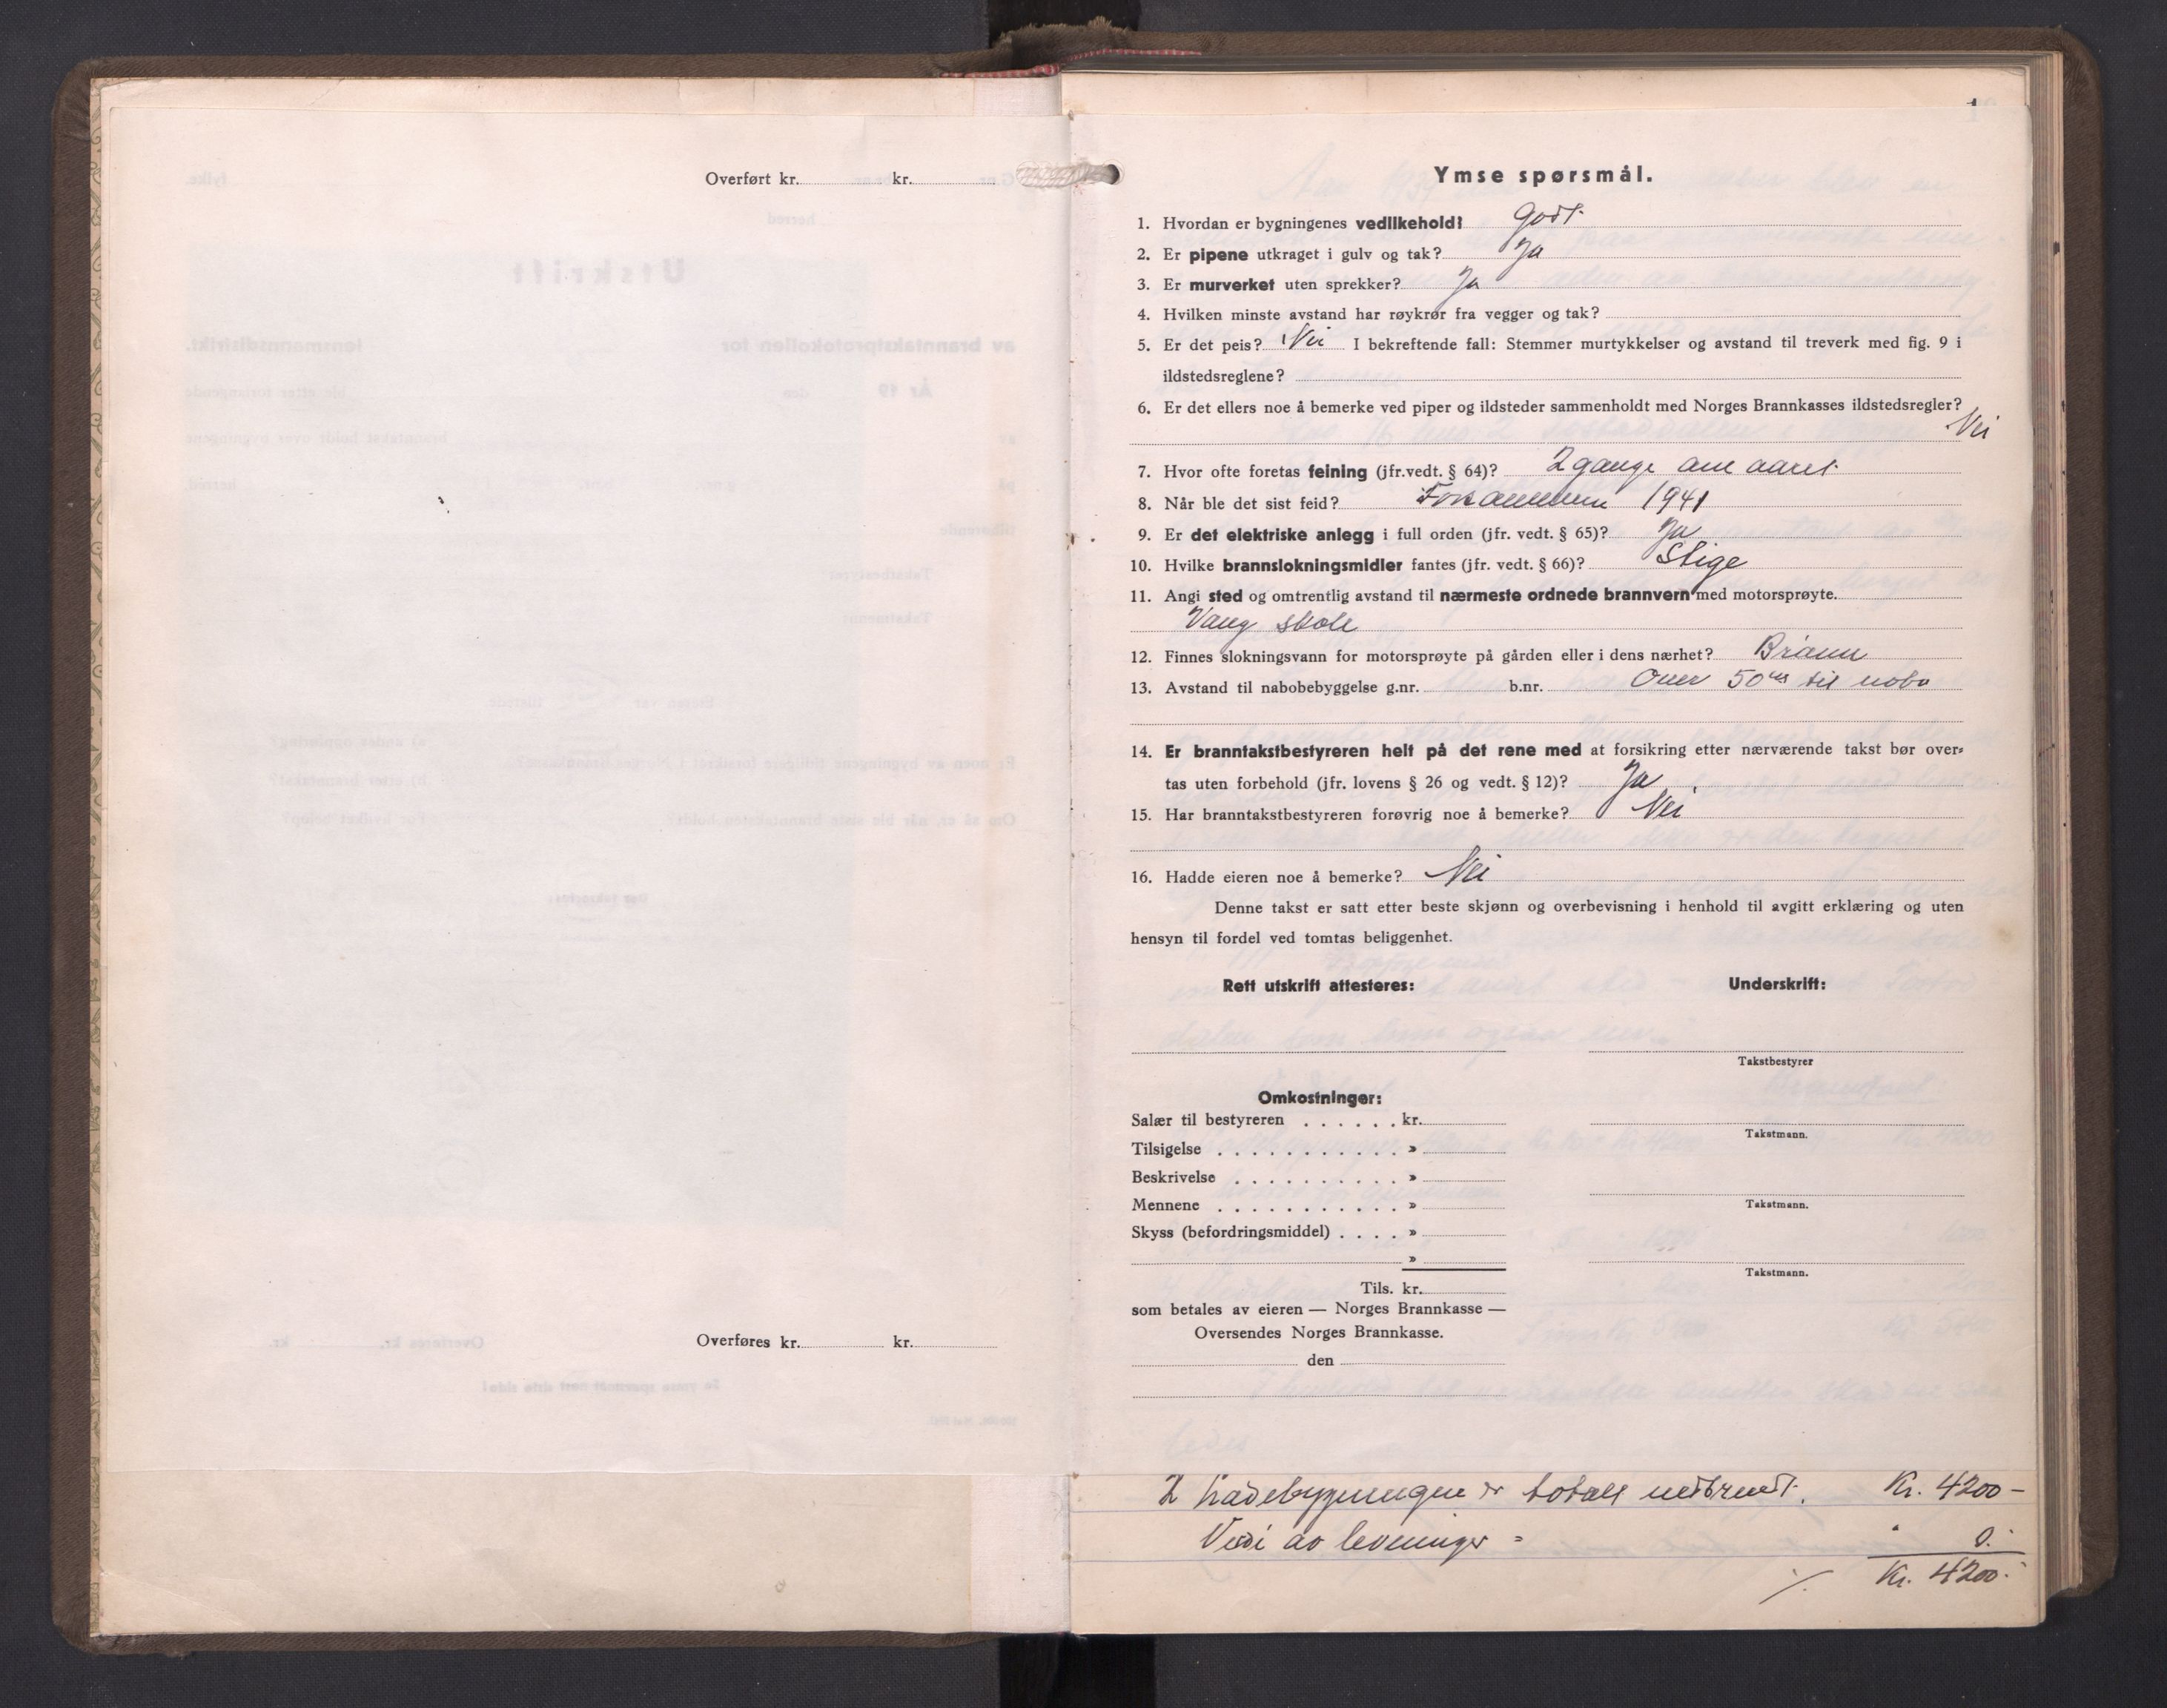 Overført kr. kr.
Overføres kr. kr.
1
Ymse spørsmål.
1. Hvordan er bygningenes vedlikehold? Godt
2. Er pipene utkraget i gulv og tak? Ja
3. Er murverket uten sprekker? Ja
4. Hvilken minste avstand har røykrør fra vegger og tak?
5. Er det peis? Nei I bekreftende fall: Stemmer murtykkelser og avstand til treverk med fig. 9 i
ildstedsreglene?
6. Er det ellers noe å bemerke ved piper og ildsteder sammenholdt med Norges Brannkasses ildstedsregler?
Nei
7. Hvor ofte foretas feining (jfr.vedt. § 64)? 2 gange om aaret
8. Når ble det sist feid? 1941
9. Er det elektriske anlegg i full orden (jfr. vedt. § 65)? Ja
10. Hvilke brannslokningsmidler fantes (jfr. vedt. § 66)? Stige
11. Angi sted og omtrentlig avstand til nærmeste ordnede brannvern med motorsprøyte.
Vang skole
12. Finnes slokningsvann for motorsprøyte på gården eller i dens nærhet? Brønn
13. Avstand til nabobebyggelse g.nr. b.nr. Over 50 m til nabo
14. Er branntakstbestyreren helt på det rene med at forsikring etter nærværende takst bør over-
tas uten forbehold (jfr. lovens § 26 og vedt. § 12)? Ja
15. Har branntakstbestyreren forøvrig noe å bemerke? Nei
16. Hadde eieren noe å bemerke? Nei
Denne takst er satt etter beste skjønn og overbevisning i henhold til avgitt erklæring og uten
hensyn til fordel ved tomtas beliggenhet.
Rett utskrift attesteres: Underskrift:
Takstbestyrer
Omkostninger:
Salær til bestyreren . . . . . . kr.
Takstmann.
Tilsigelse . . . . . . . . . . . »
Beskrivelse . . . . . . . . . . »
Mennene . . . . . . . . . . . »
Takstmann.
Skyss (befordringsmiddel) . . . . »
»
Takstmann.
Tils. kr.
som betales av eieren — Norges Brannkasse —
Oversendes Norges Brannkasse.
den
totalt nedbrendt. Kr. 4200 -
Verdi av levninger = " 0.
Kr. 4200.-